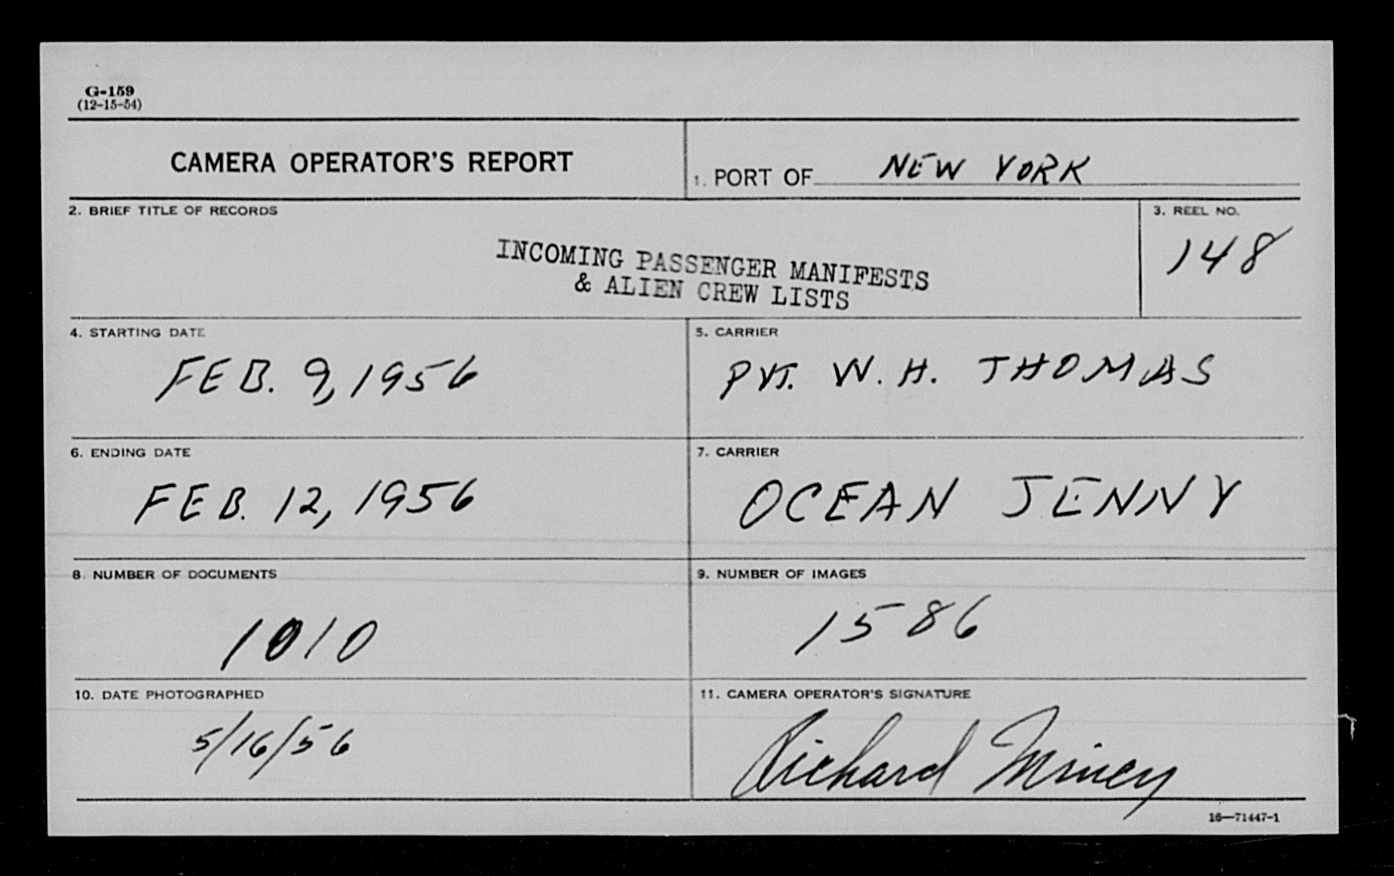 G-159
(12-15-54)
CAMERA OPERATOR'S REPORT
1. PORT OF NEW YORK
2. BRIEF TITLE OF RECORDS
INCOMING PASSENGER MANIFESTS
& ALIEN CREW LISTS
3. REEL NO.
148
4. STARTING DATE
FEB. 9, 1956
5. CARRIER
PVT. W. H. THOMAS
6. ENDING DATE
FEB. 12, 1956
7. CARRIER
OCEAN JENNY
8. NUMBER OF DOCUMENTS
1010
9. NUMBER OF IMAGES
1586
10. DATE PHOTOGRAPHED
5/16/56
11. CAMERA OPERATOR'S SIGNATURE
Richard
16—71447-1